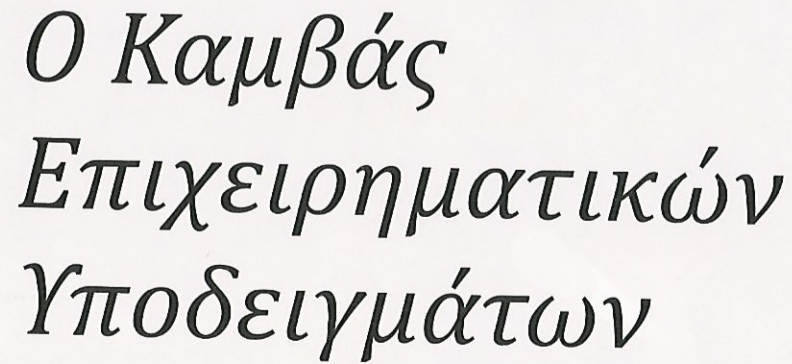 Ο Καμβάς
Επιχειρηματικών
Υποδειγμάτων